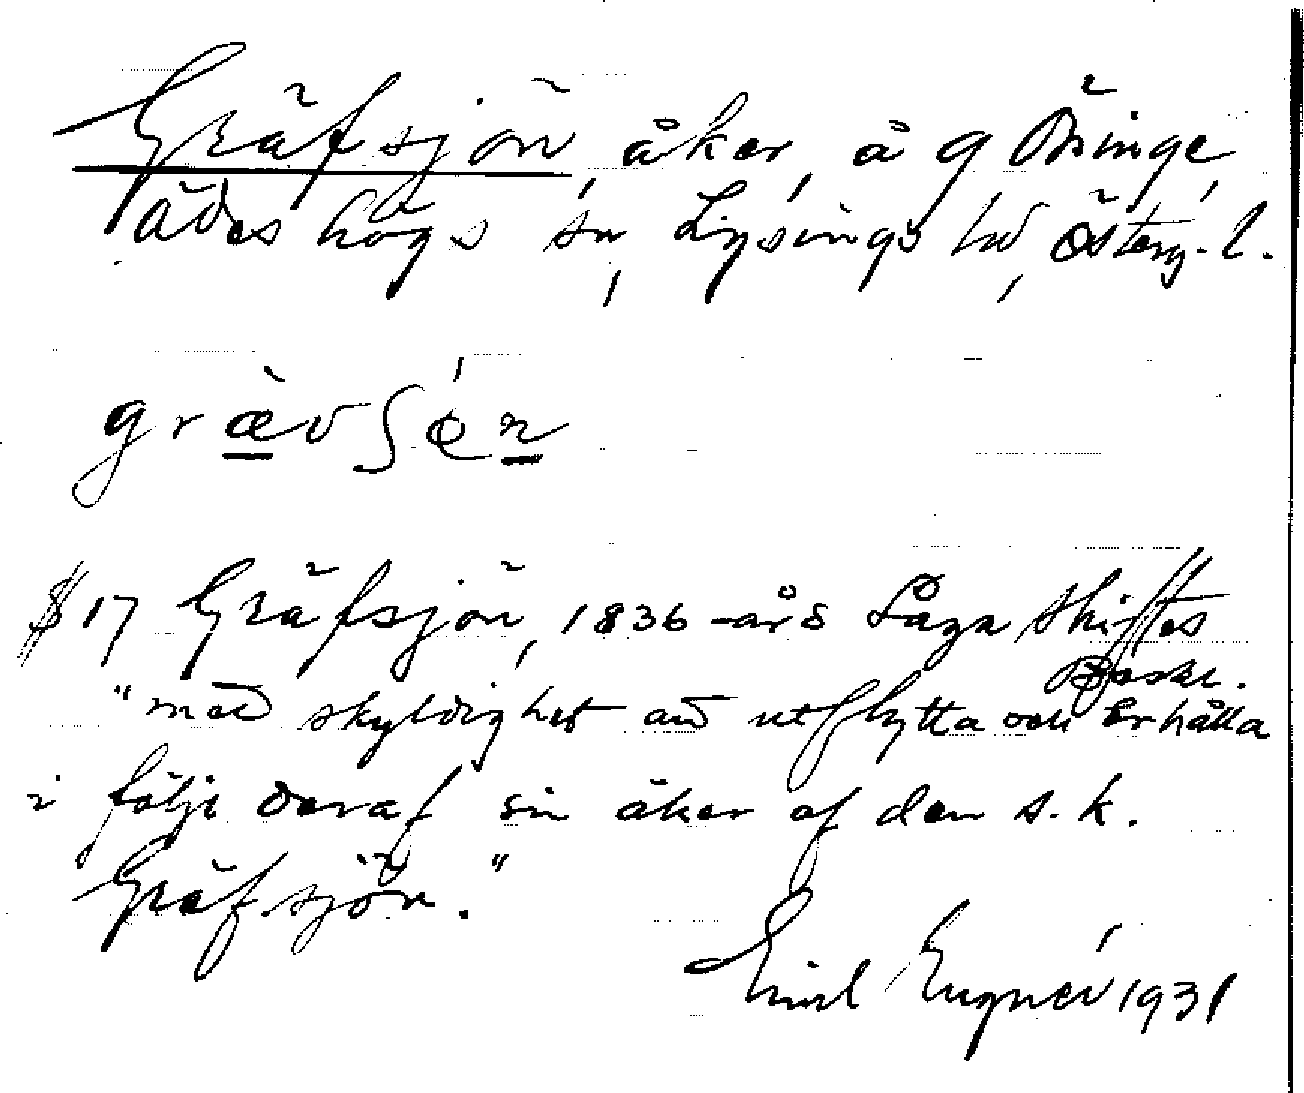 Gräfsjön, åker, å g Öninge,
Ödeshögs sn, Lysings hd, Österg. l.
græ̀vʃǿn
§ 17 Gräfsjön, 1836-års Laga Skiftes
Beskr.
"med skyldighet att utflytta och Erhålla
i följe deraf sin åker af den s.k.
Gräfsjön."
Emil Eugnér 1931